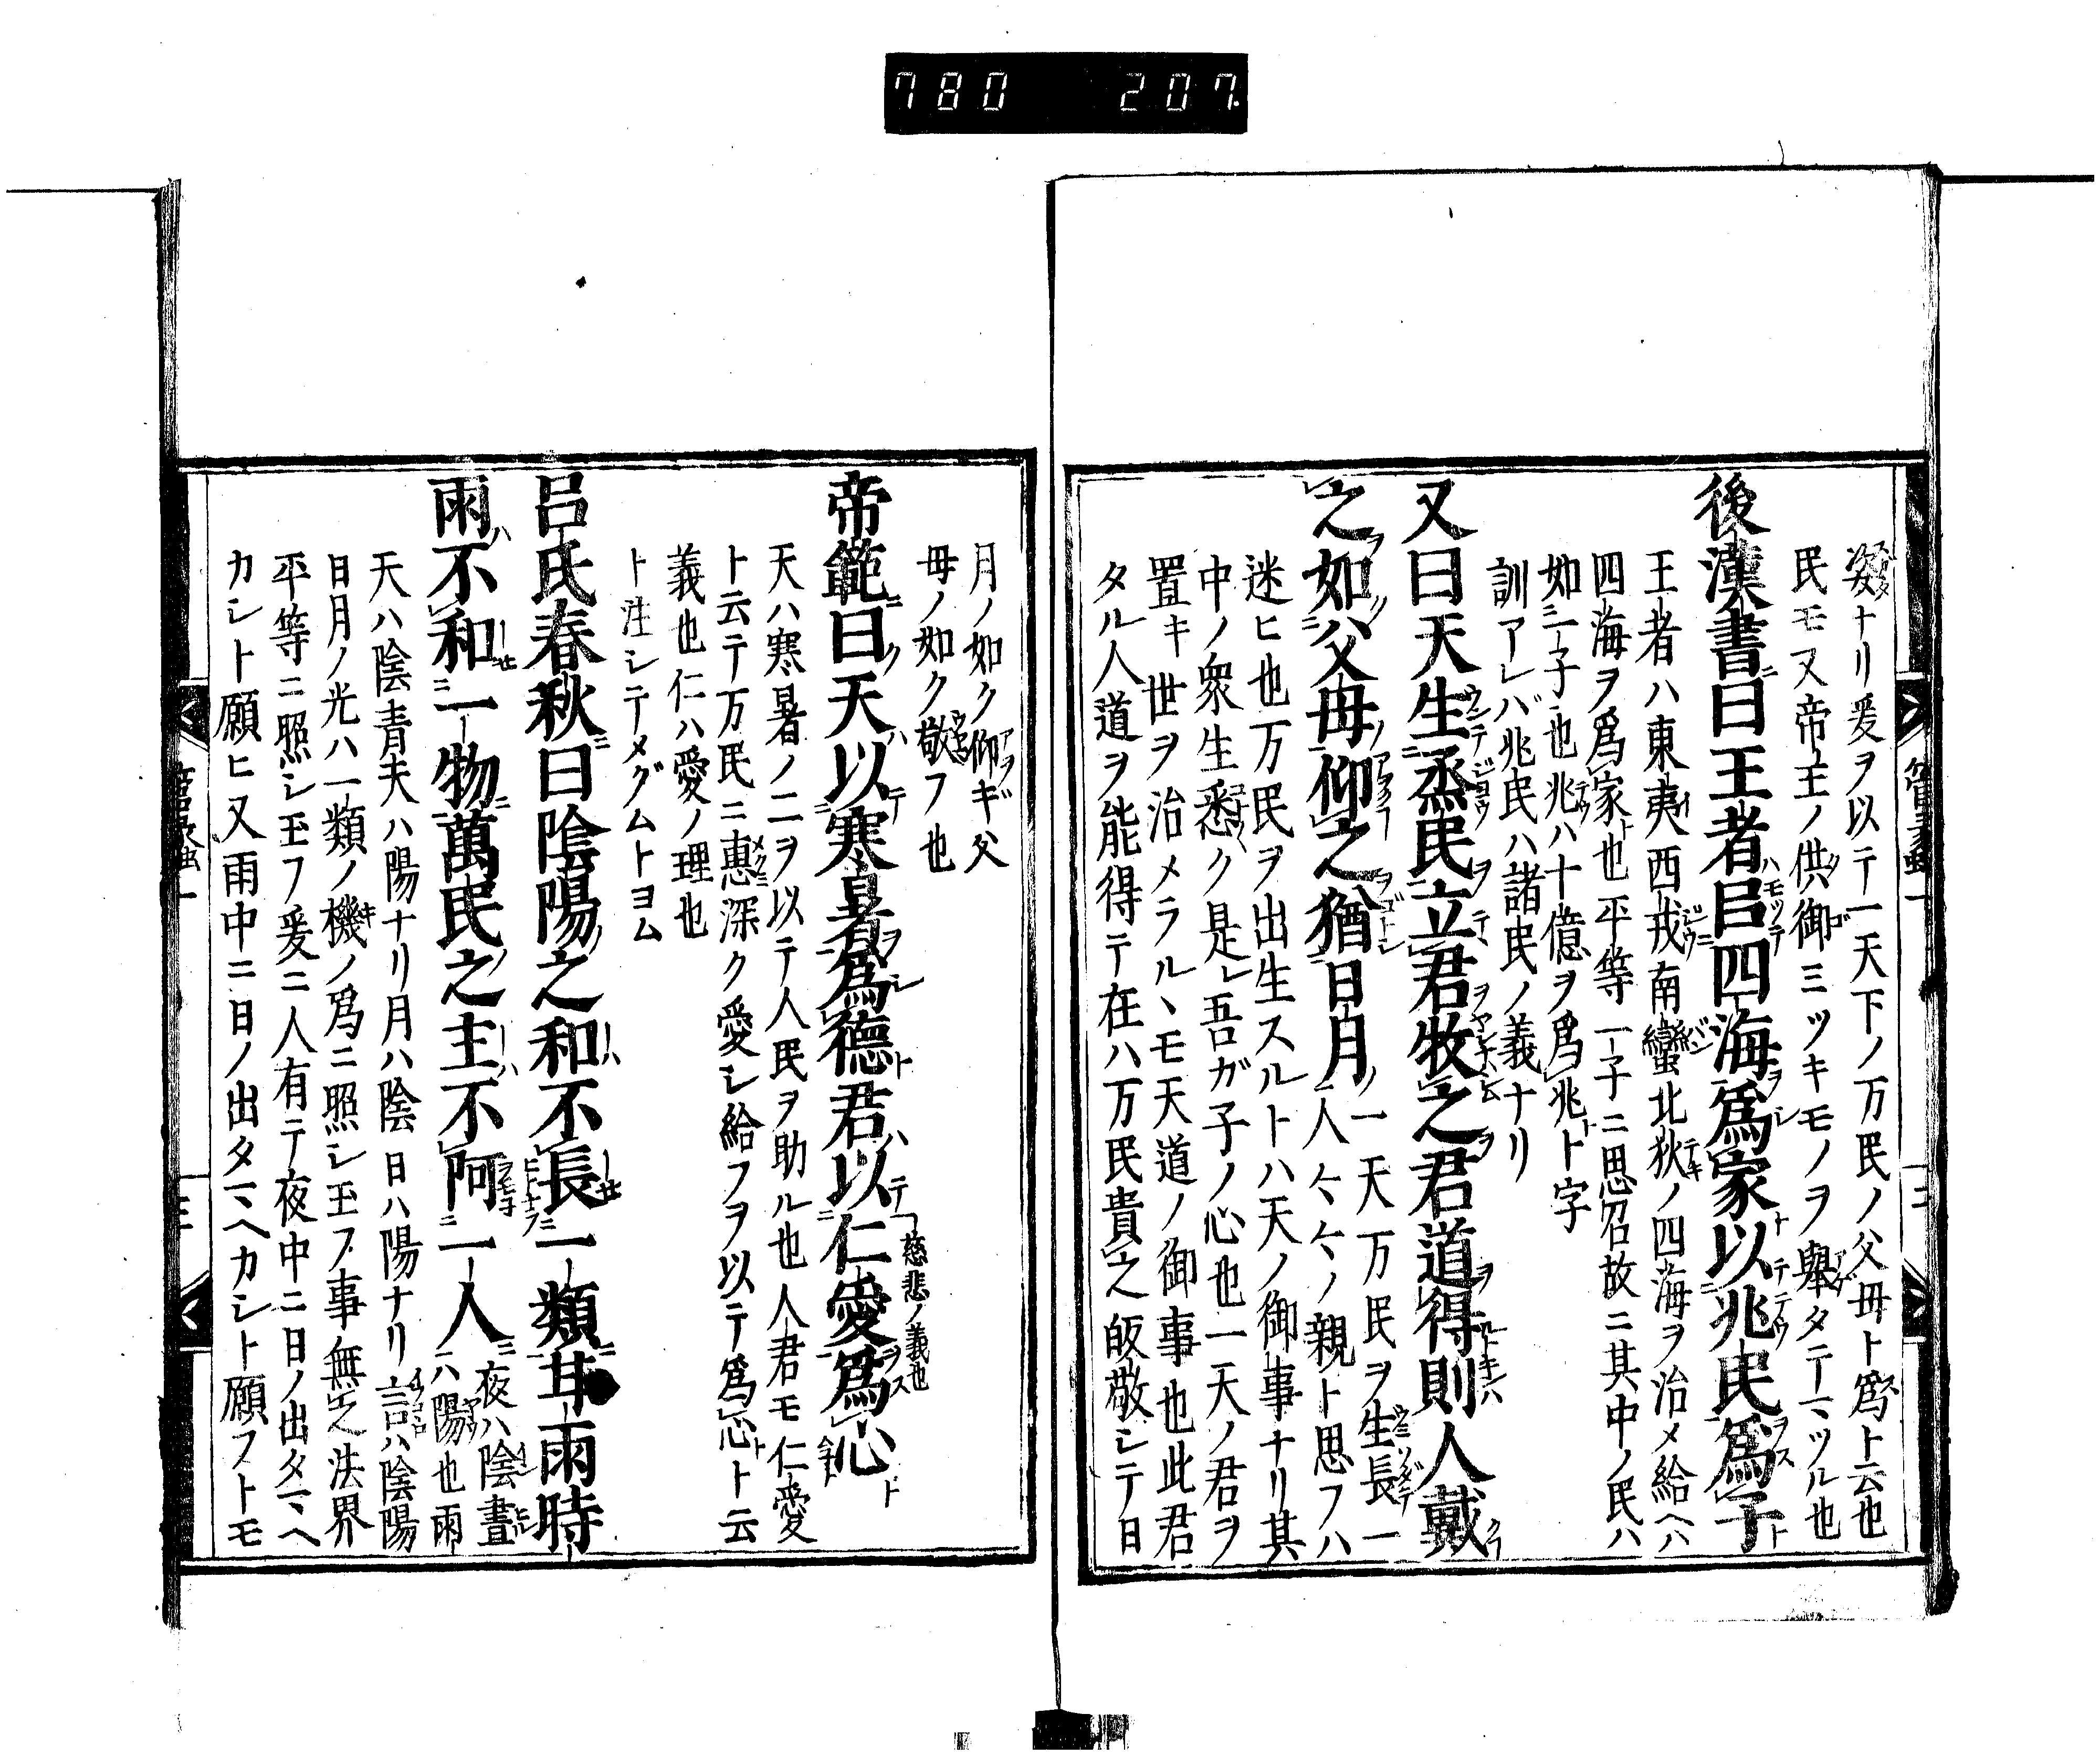 780 207.
姿ナリ爰ヲ以テ一天下ノ万民ノ父毋ト爲ト云也
民モ又帝王ノ供御ミツキモノヲ舉タテマツル也
後漢書曰王者㠯四海爲家以兆民爲子
王者ハ東夷西戎南蠻北狄ノ四海ヲ治メ給ヘハ
四海ヲ爲家也平等一子ニ思召故ニ其中ノ民ハ
如一子也兆ハ十億ヲ爲兆ト字
訓アレバ兆民ハ諸民ノ義ナリ
又曰天生烝民立君牧之君道得則人戴
之如父毋仰之猶日月一天万民ヲ生長一
人々々ノ親ト思フハ
迷ヒ也万民ヲ出生スルトハ天ノ御事ナリ其
中ノ衆生悉ク是レ吾ガ子ノ心也一天ノ君ヲ
置キ世ヲ治メラルヽモ天道ノ御事也此君
タル人道ヲ能得テ在ハ万民貴之皈敬シテ日
月ノ如ク仰ギ父
毋ノ如ク敬フ也
帝範曰天以寒暑爲德君以仁愛爲心
慈悲ノ義也
天ハ寒暑ノ二ヲ以テ人民ヲ助ル也人君モ仁愛
ト云テ万民ニ惠深ク愛シ給フヲ以テ爲心ト云
義也仁ハ愛ノ理也
ト注シテメグムトヨム
呂氏春秋曰陰陽之和不長一類甘雨時
雨不和一物萬民之主不阿一人夜ハ陰晝
ハ陽也雨
天ハ陰青夫ハ陽ナリ月ハ陰日ハ陽ナリ言ハ陰陽
日月ノ光ハ一類ノ機ノ爲ニ照シ玉フ事無之法界
平等ニ照シ玉フ爰ニ人有テ夜中ニ日ノ出タマヘ
カシト願ヒ又雨中ニ日ノ出タマヘカシト願フトモ